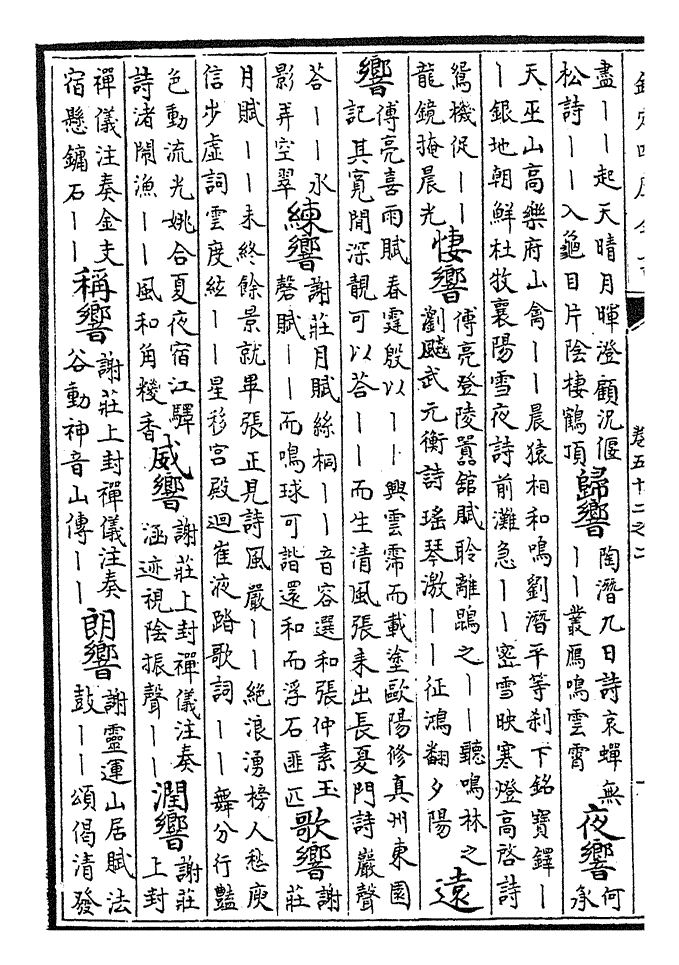 欽定四庫全書
卷五十二之二
盡丨丨起天晴月暉澄顧況偃
松詩丨丨入龜目片陰棲鶴頂
歸響
陶潛九日詩哀蟬無
丨丨叢鴈鳴雲霄
夜響
何
承
天巫山高樂府山禽丨丨晨猿相和鳴劉潛平等刹下銘寶鐸丨
丨銀地朝鮮杜牧襄陽雪夜詩前灘急丨丨密雪映寒燈高啓詩
鴛機促丨丨
龍鏡掩晨光
悽響
傅亮登陵囂館賦聆離鵾之丨丨聽鳴林之
劉飇武元衡詩瑤琴激丨丨征鴻翻夕陽
遠
響
傅亮喜雨賦春霆殷以丨丨興雲霈而載塗歐陽修真州東園
記其寬閒深靚可以答丨丨而生清風張耒出長夏門詩巖聲
答丨丨水
影弄空翠
練響
謝莊月賦絲桐丨丨音容選和張仲素玉
磬賦丨丨而鳴球可諧還和而浮石匪匹
歌響
謝
莊
月賦丨丨未終餘景就畢張正見詩風嚴丨丨絕浪湧榜人愁庾
信步虛詞雲度絃丨丨星移宮殿迴崔液踏歌詞丨丨舞分行豔
色動流光姚合夏夜宿江驛
詩渚鬧漁丨丨風和角糉香
威響
謝莊上封禪儀注奏
涵迹視陰振聲丨丨
潤響
謝莊
上封
禪儀注奏金支
宿懸鏞石丨丨
稱響
謝莊上封禪儀注奏
谷動神音山傳丨丨
朗響
謝靈運山居賦法
鼓丨丨頌偈清發